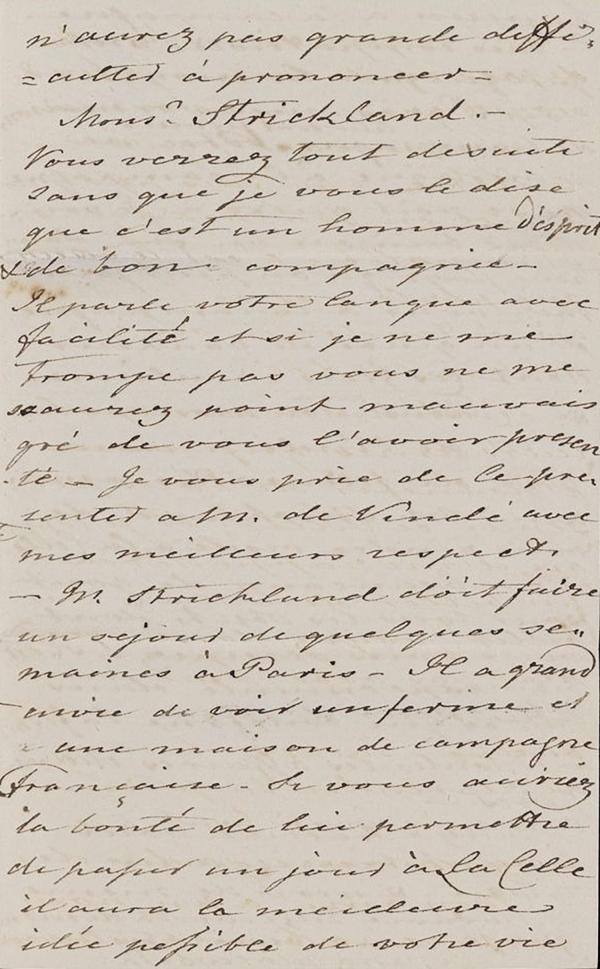 n'aurez pas grande diffi-
=cultes à prononcer=
Monsr. Strickland. -
Vous verrez tout desuite
sans que je vous le dise
que c'est un homme d'esprit
& de bon compagnie -
Il parle votre langue avec
facilité et si je ne me
trompe pas vous ne me
saurez point mauvais
gré de vous l'avoir presen
-té - Je vous prie de le pre-
senter a M. de Vindé avec
mes meilleurs respects
- Mr. Strickland doit faire
un sejour de quelques se-
maines à Paris - Il a grand
envie de voir un ferme et
une maison de campagne
française - Si vous auriez
la bonté de lui permettre
de passer un jour à La Celle
il aura la meilleure
idée possible de votre vie